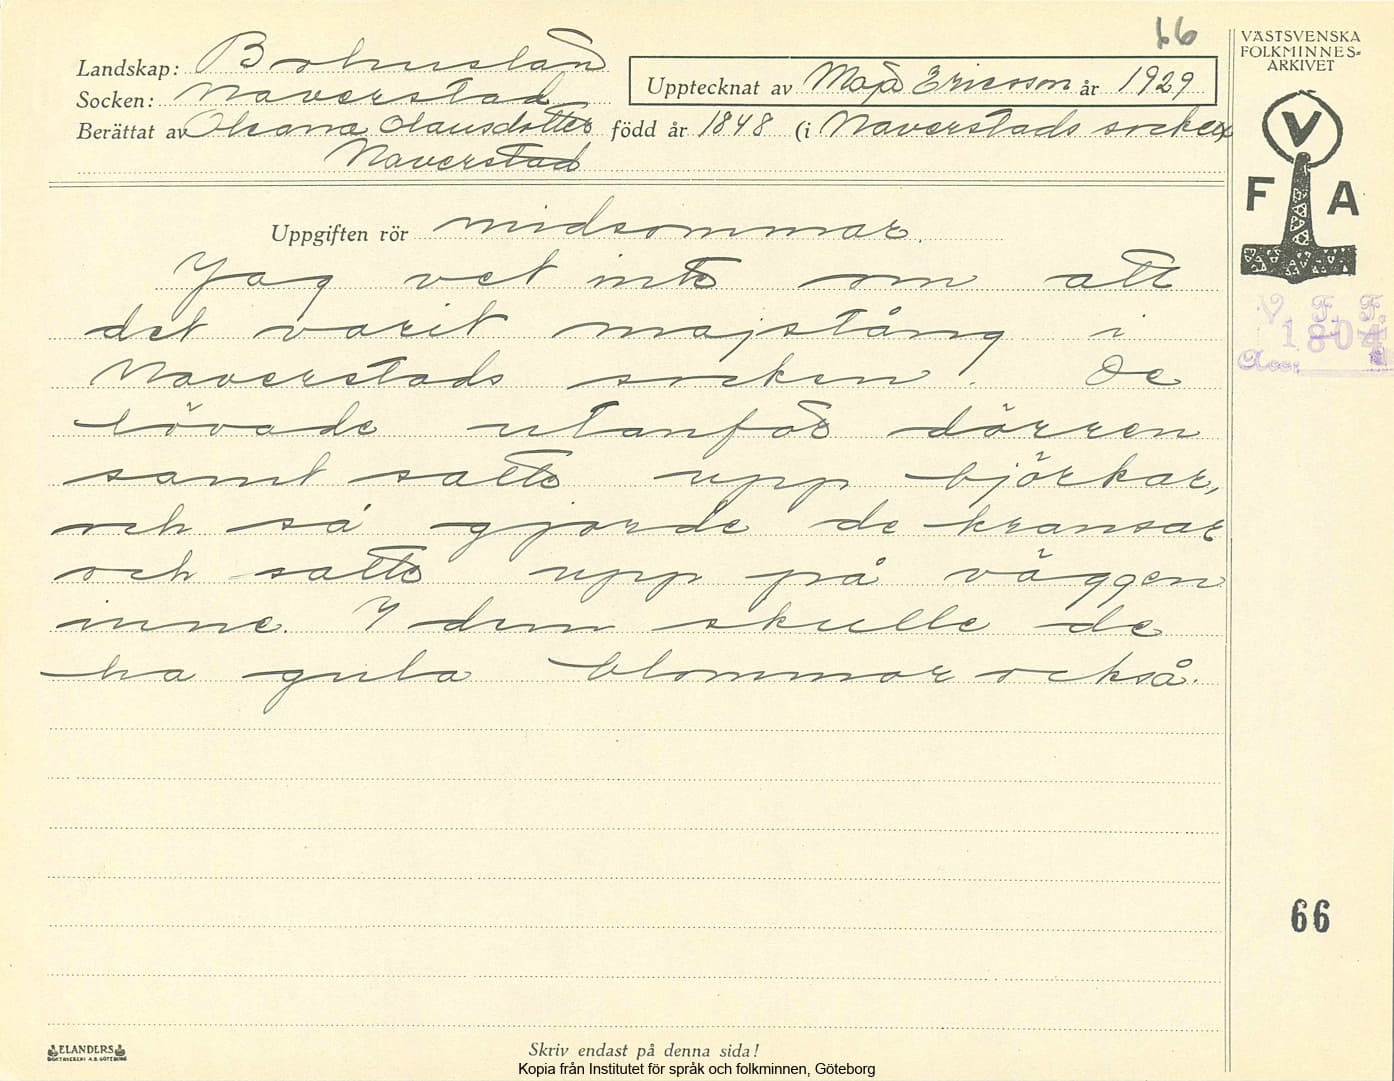 66
VÄSTSVENSKA
FOLKMINNES-
ARKIVET
Landskap: Bohuslän
Upptecknat av Maja Ericsson år 1929
Socken: Naverstad
Berättat av Oleana Olausdotter född år 1848 (i Naverstads socken
Naverstad
V
F A
Uppgiften rör midsommar.
Jag vet inte om att
det varit majstång i
Naverstads socken. De
lövade utanför dörren
samt satte upp björkar,
och så gjorde de kransar
och satte upp på väggen
inne. I dem skulle de
ha gula blommor också.
V. F. F.
1804
Acc.
66
ELANDERS
BOKTRYCKERI A.B. GÖTEBORG
Skriv endast på denna sida!
Kopia från Institutet för språk och folkminnen, Göteborg